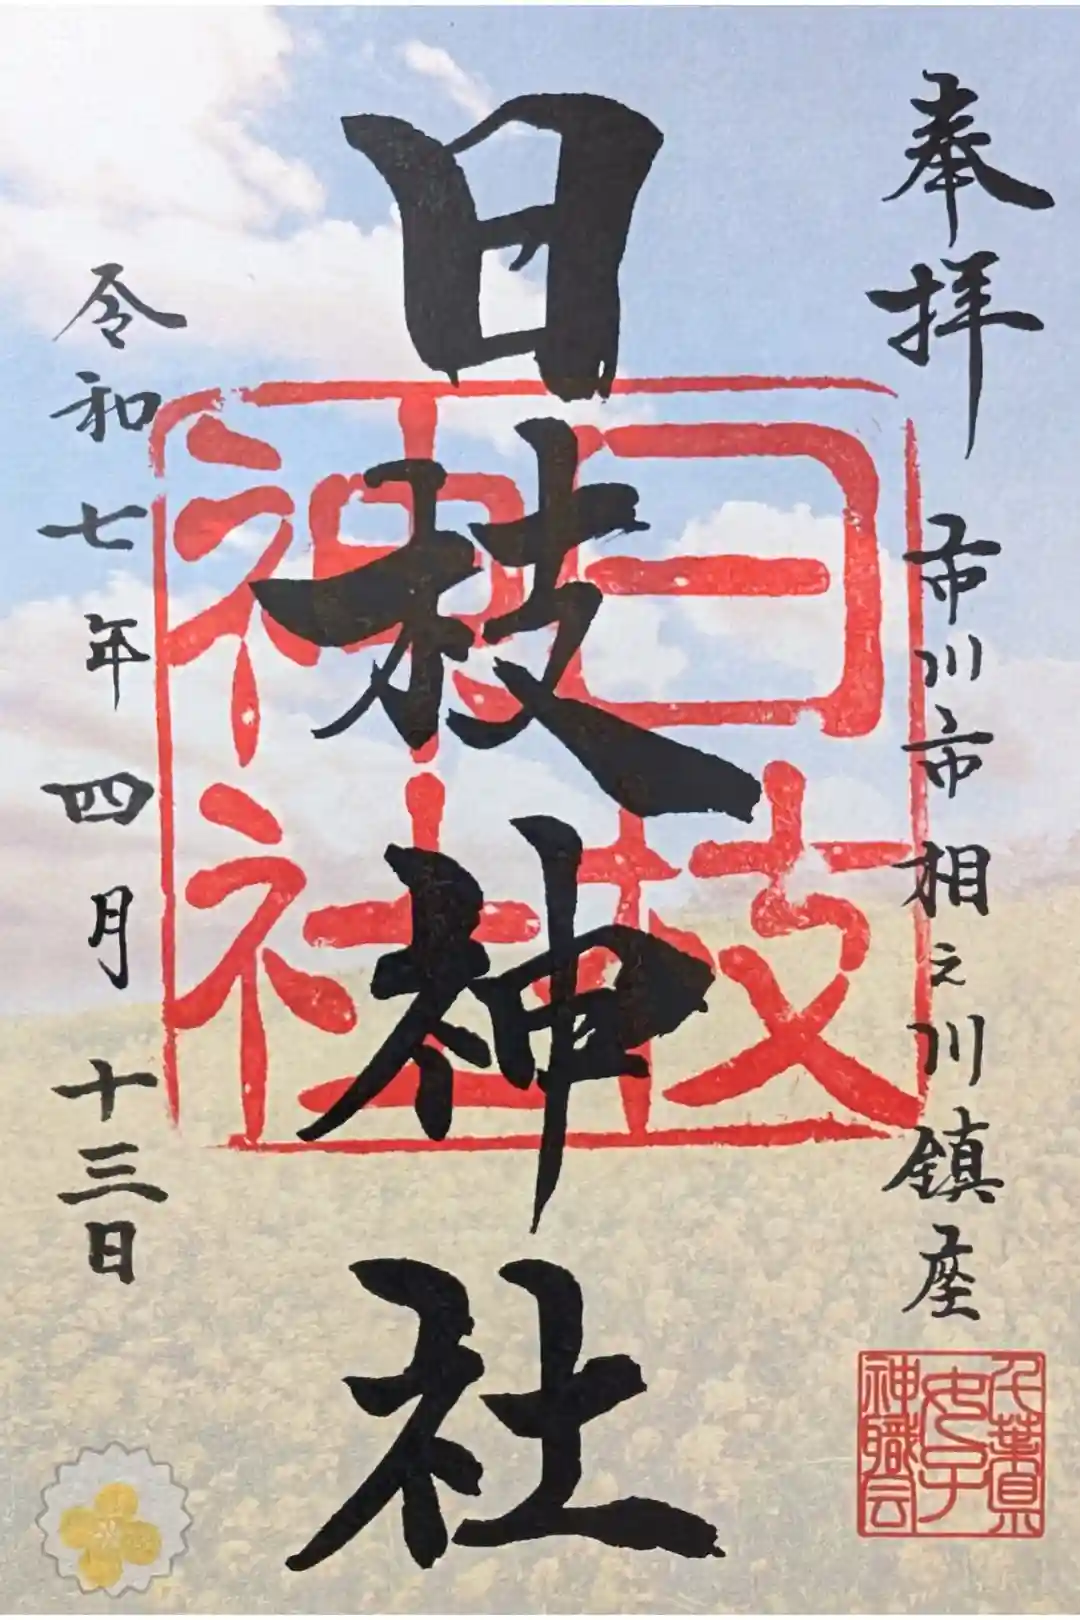 奉拝
市川市相之川鎮座
千葉県
女子
神職会
日枝神社
日枝
神社
令和七年四月十三日